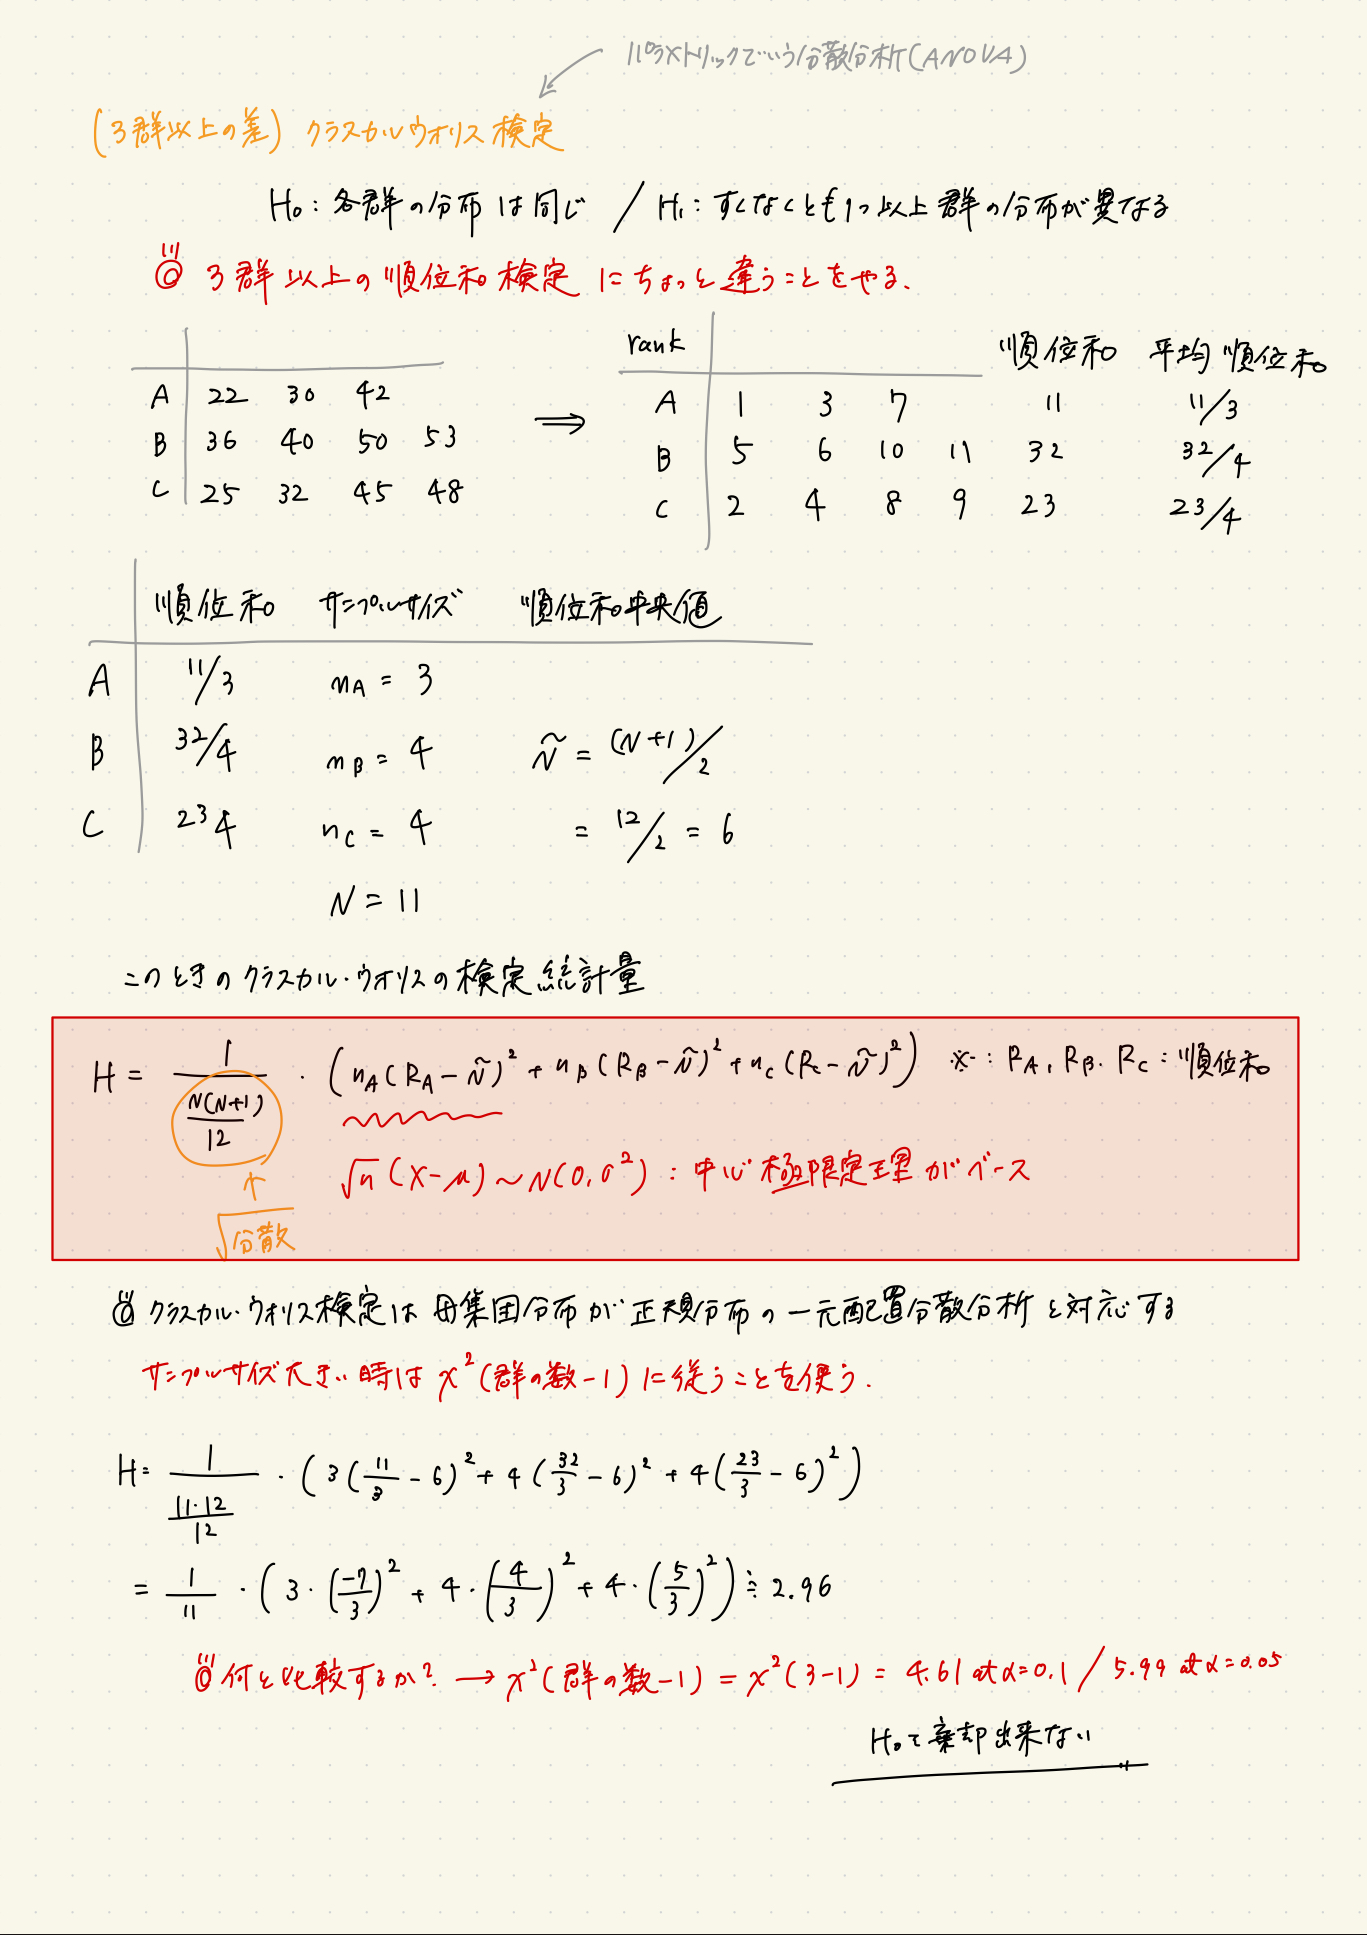 パラメトリックでいう分散分析(ANOVA)
(3群以上の差) クラスカルウォリス検定
H₀: 各群の分布は同じ / H₁: すくなくとも1つ以上群の分布が異なる
◎ 3群以上の順位和検定にちょっと違うことをやる.
rank 順位和 平均順位和
A 22 30 42 ⇒ A 1 3 7 11 11/3
B 36 40 50 53 B 5 6 10 11 32 32/4
C 25 32 45 48 C 2 4 8 9 23 23/4
順位和 サンプルサイズ 順位和中央値
A 11/3 nA = 3
B 32/4 nB = 4 Ñ = (N+1)/2
C 23 4 nC = 4 = 12/2 = 6
N = 11
このときのクラスカル・ウォリスの検定統計量
H = 1/(N(N+1)/12) · (nA(RA-Ñ)² + nB(RB-Ñ)² + nC(RC-Ñ)²) ※: RA, RB. RC: 順位和
√n (X-μ) ~ N(0, σ²) : 中心極限定理がベース
√分散
◎ クラスカル・ウォリス検定は母集団分布が正規分布の一元配置分散分析と対応する
サンプルサイズ大きい時は χ²(群の数-1) に従うことを使う.
H= 1/(11·12/12) · (3(11/3 - 6)² + 4(32/3 - 6)² + 4(23/3 - 6)²)
= 1/11 · (3·(-7/3)² + 4·(4/3)² + 4·(5/3)²) ≒ 2.96
◎ 何と比較するか? → χ²(群の数-1) = χ²(3-1) = 4.61 at α=0.1 / 5.99 at α=0.05
H₀て棄却出来ない